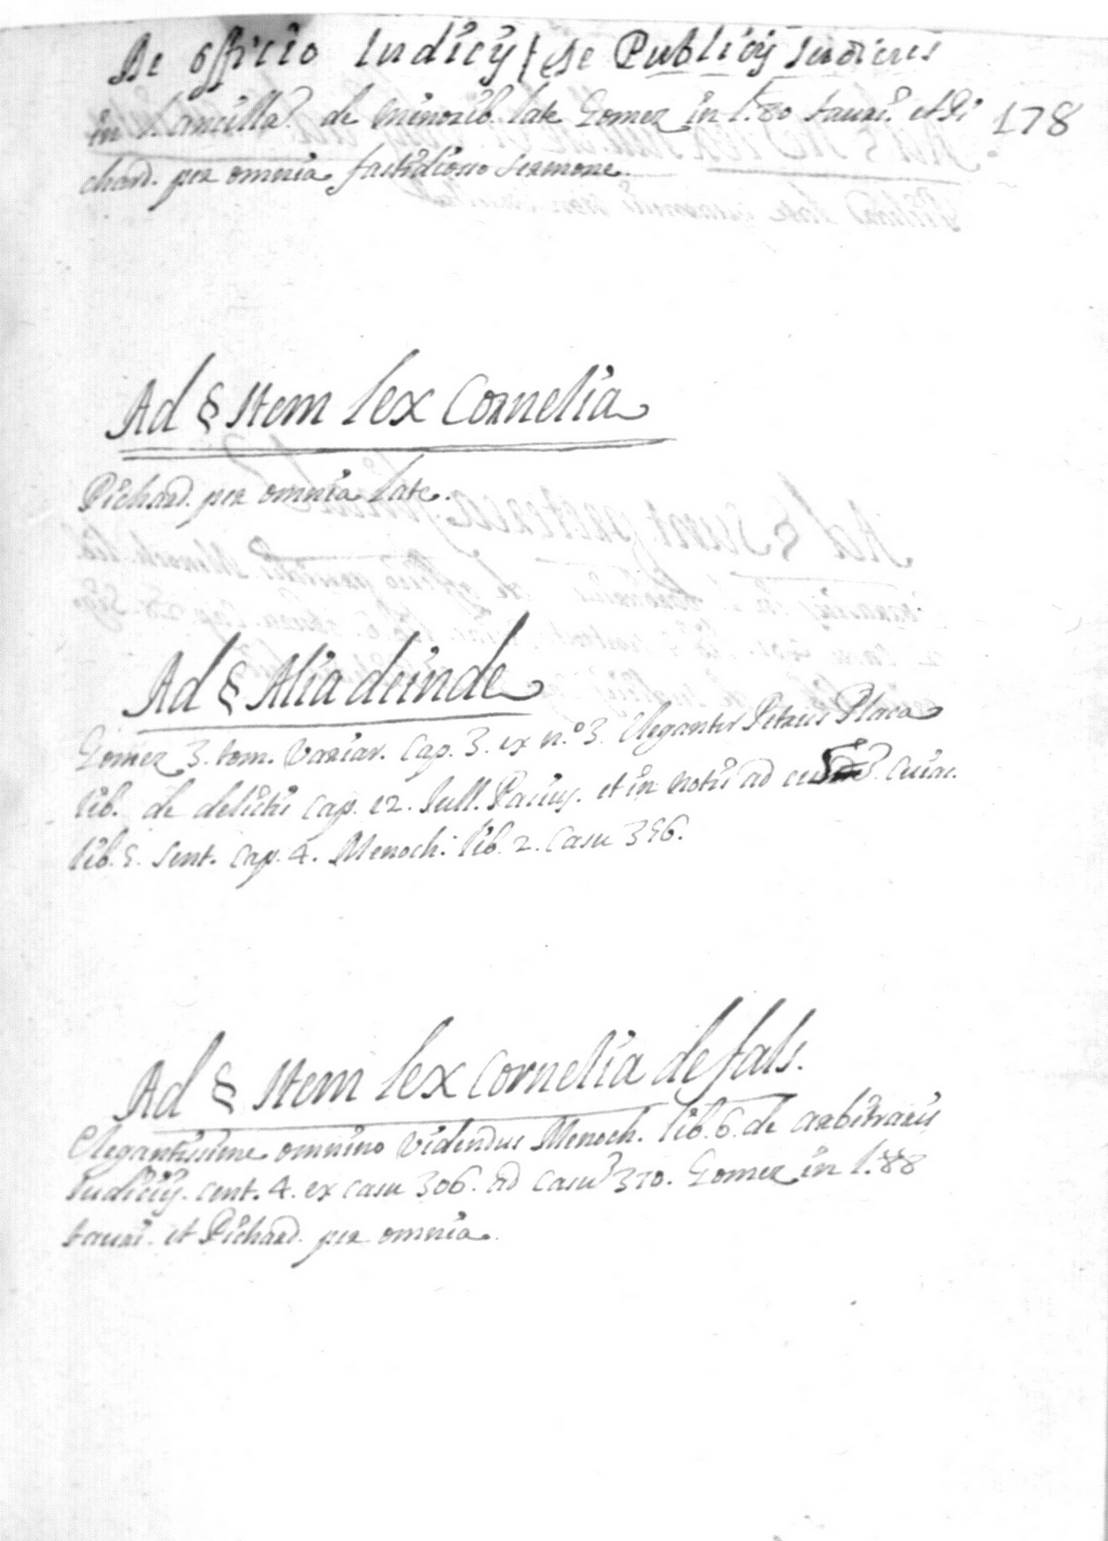 De officio Iudicij / de Publicij Iudicies
in l. ancilla. de minorib. late Gomez in l. 80 tauri. et Pi 178
chard. per omnia fastidioso sermone.
Ad § Item lex Cornelia
Pichard. per omnia late.
Ad § Alia deinde
Gomez 3. tom. Variar. Cap. 3. ex n.º 3. eleganter Petrus Placa
lib. de delictis Cap. 12. Jull. Pacius. et in notis ad Cuiac.
lib. 5. sent. Cap. 4. Menoch. lib. 2. Casu 356.
Ad § Item lex Cornelia de fals.
Elegantissime omnino videndus Menoch. lib. 6. de arbitrarijs
Iudicijs. cent. 4. ex casu 306. ad Casu 310. Gomez in l. 88
tauri. et Pichard. per omnia.